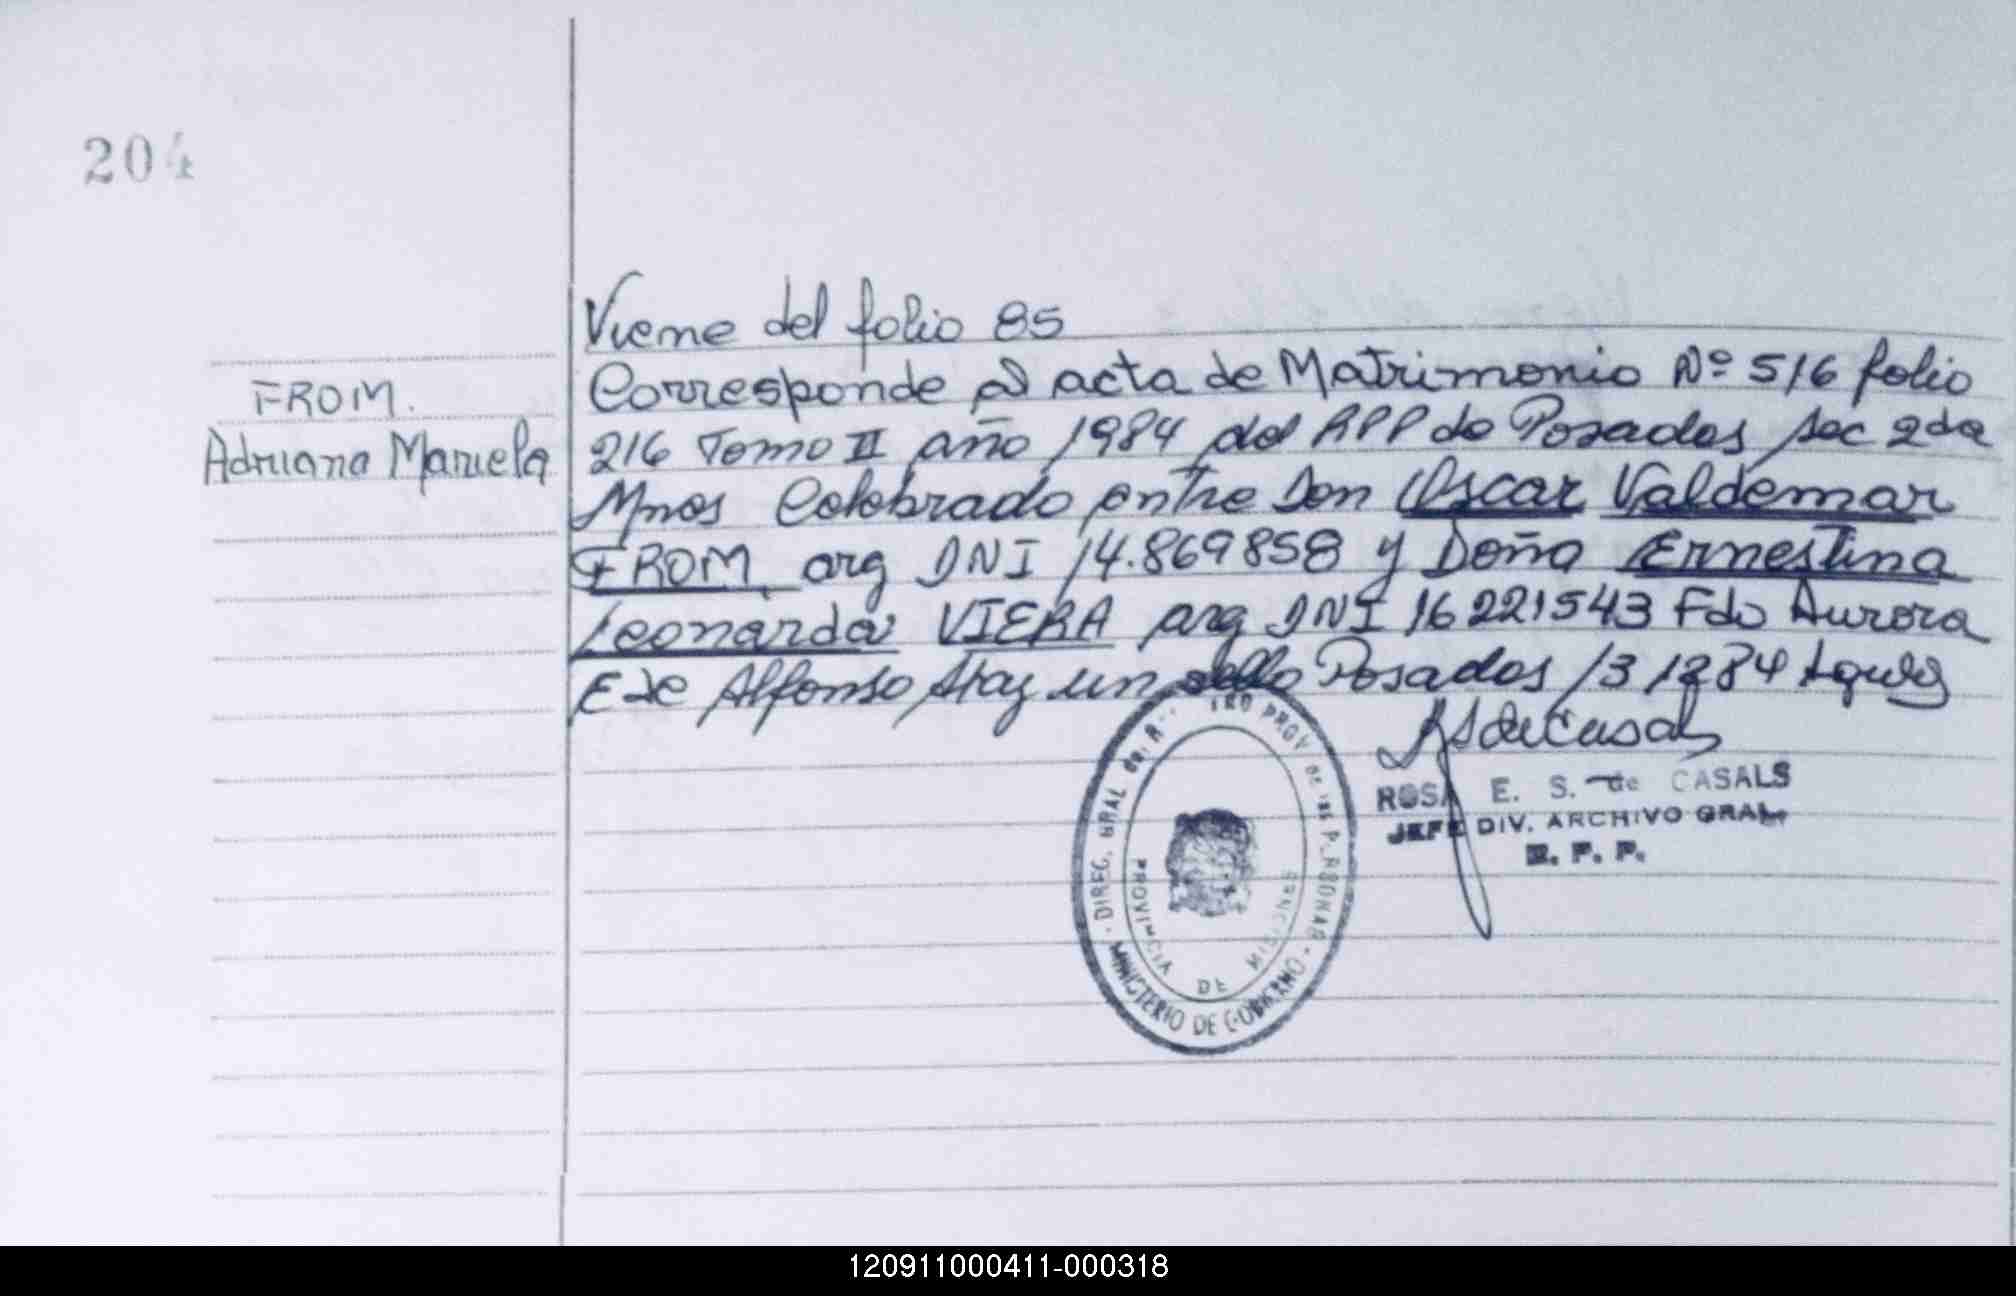 204
Viene del folio 85
FROM.
Adriana Mariela
Corresponde al acta de Matrimonio Nº 516 folio
216 Tomo II año 1984 del RPP de Posadas sec 2da
Mnes Celebrado entre Don Oscar Valdemar
FROM arg DNI 14.869858 y Doña Ernestina
Leonarda VIERA arg DNI 16221543 Fdo Aurora
E de Alfonso Hay un sello Posadas 13 12 84
ROSA E. S. de CASALS
JEFE DIV. ARCHIVO GRAL.
R. P. P.
DIREC. GRAL del PROV DE LAS PERSONAS
MINISTERIO DE GOBIERNO
PROVINCIA DE MISIONES
120911000411-000318